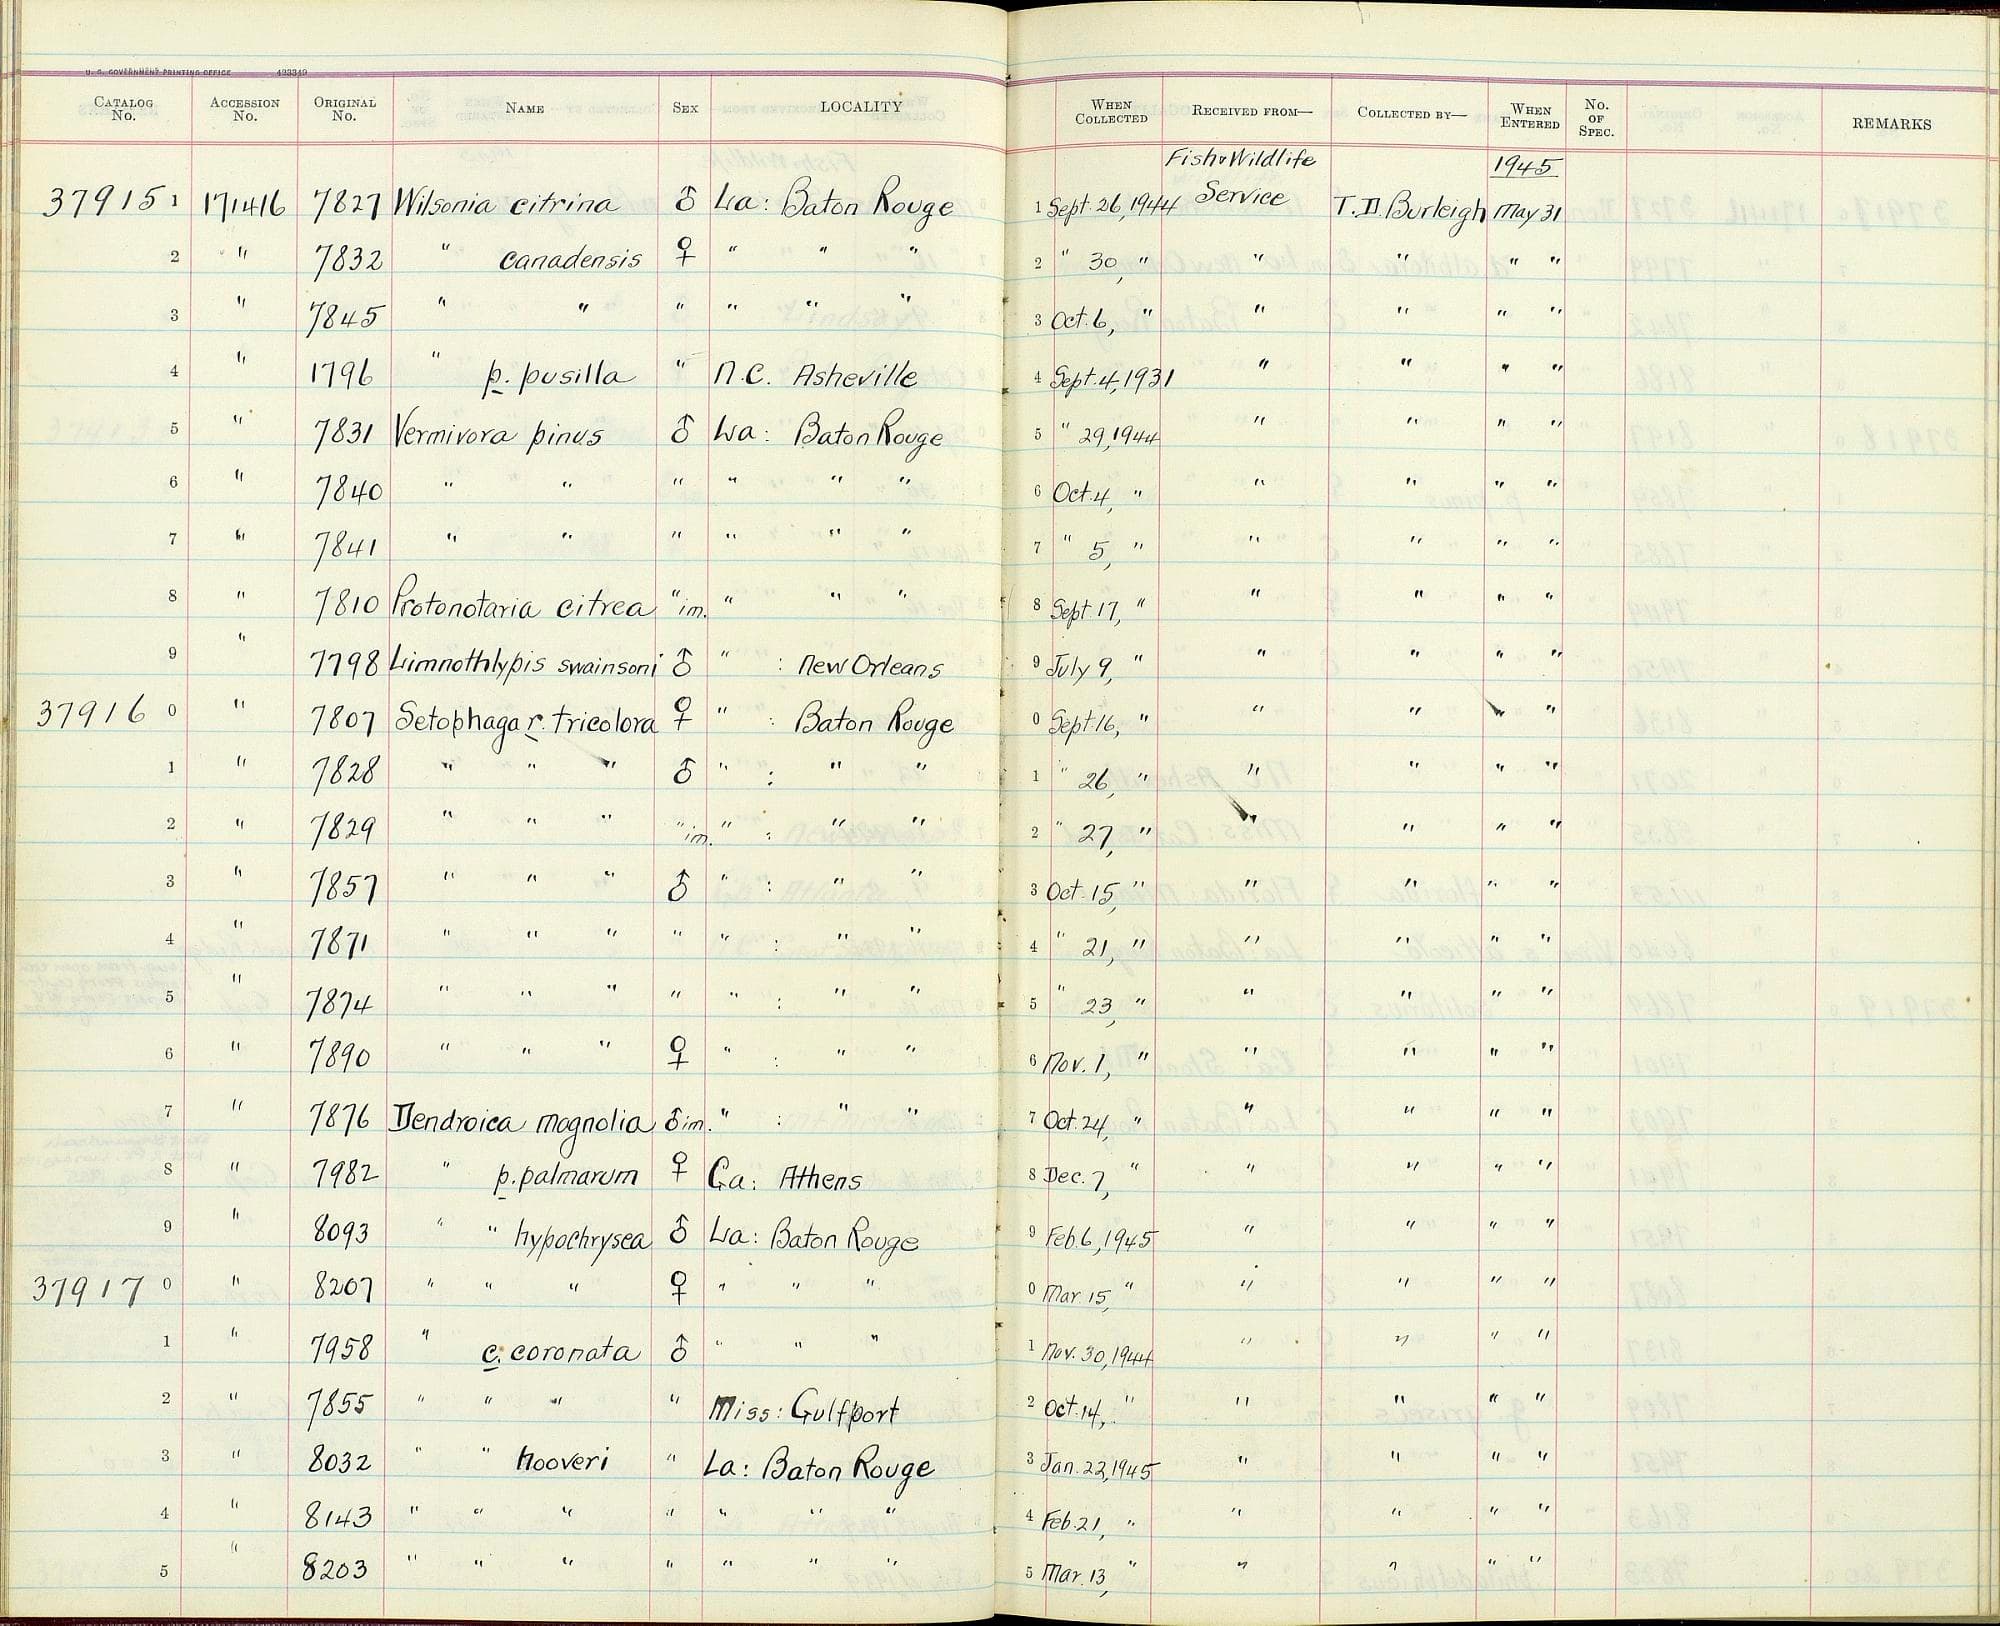 U. S. GOVERNMENT PRINTING OFFICE 423349
CATALOG No. ACCESSION No. ORIGINAL No. NAME SEX LOCALITY WHEN COLLECTED RECEIVED FROM— COLLECTED BY— WHEN ENTERED No. OF SPEC. REMARKS
Fish & Wildlife 1945
37915 1 171416 7827 Wilsonia citrina ♂ La: Baton Rouge 1 Sept. 26, 1944 Service T.D. Burleigh May 31
2 " 7832 " canadensis ♀ " " " 2 " 30, " " " " "
3 " 7845 " " " " " " 3 Oct. 6, " " " " "
4 " 1796 " p. pusilla " N.C. Asheville 4 Sept. 4, 1931 " " " "
5 " 7831 Vermivora pinus ♂ La: Baton Rouge 5 " 29, 1944 " " " "
6 " 7840 " " " " " " 6 Oct. 4, " " " " "
7 " 7841 " " " " " " 7 " 5, " " " " "
8 " 7810 Protonotaria citrea " im. " " " 8 Sept. 17, " " " " "
9 " 7798 Limnothlypis swainsoni ♂ " : New Orleans 9 July 9, " " " " "
37916 0 " 7807 Setophaga r. tricolora ♀ " : Baton Rouge 0 Sept. 16, " " " " "
1 " 7828 " " " ♂ " : " " 1 " 26, " " " " "
2 " 7829 " " " " im. " : " " 2 " 27, " " " "
3 " 7857 " " " ♂ " : " " 3 Oct. 15, " " " " "
4 " 7871 " " " " " : " " 4 " 21, " " " " "
5 " 7874 " " " " " : " " 5 " 23, " " " " "
6 " 7890 " " " ♀ " : " " 6 Nov. 1, " " " " "
7 " 7876 Dendroica magnolia ♂ im. " : " " 7 Oct. 24, " " " " "
8 " 7982 " p. palmarum ♀ Ga: Athens 8 Dec. 7, " " " " "
9 " 8093 " " hypochrysea ♂ La: Baton Rouge 9 Feb. 6, 1945 " " " "
37917 0 " 8207 " " " ♀ " " " 0 Mar. 15, " " " " "
1 " 7958 " c. coronata ♂ " " " 1 Nov. 30, 1944 " " " "
2 " 7855 " " " " Miss: Gulfport 2 Oct. 14, " " " " "
3 " 8032 " " hooveri " La: Baton Rouge 3 Jan. 22, 1945 " " " "
4 " 8143 " " " " " " " 4 Feb. 21, " " " " "
5 " 8203 " " " " " " " 5 Mar. 13, " " " " "